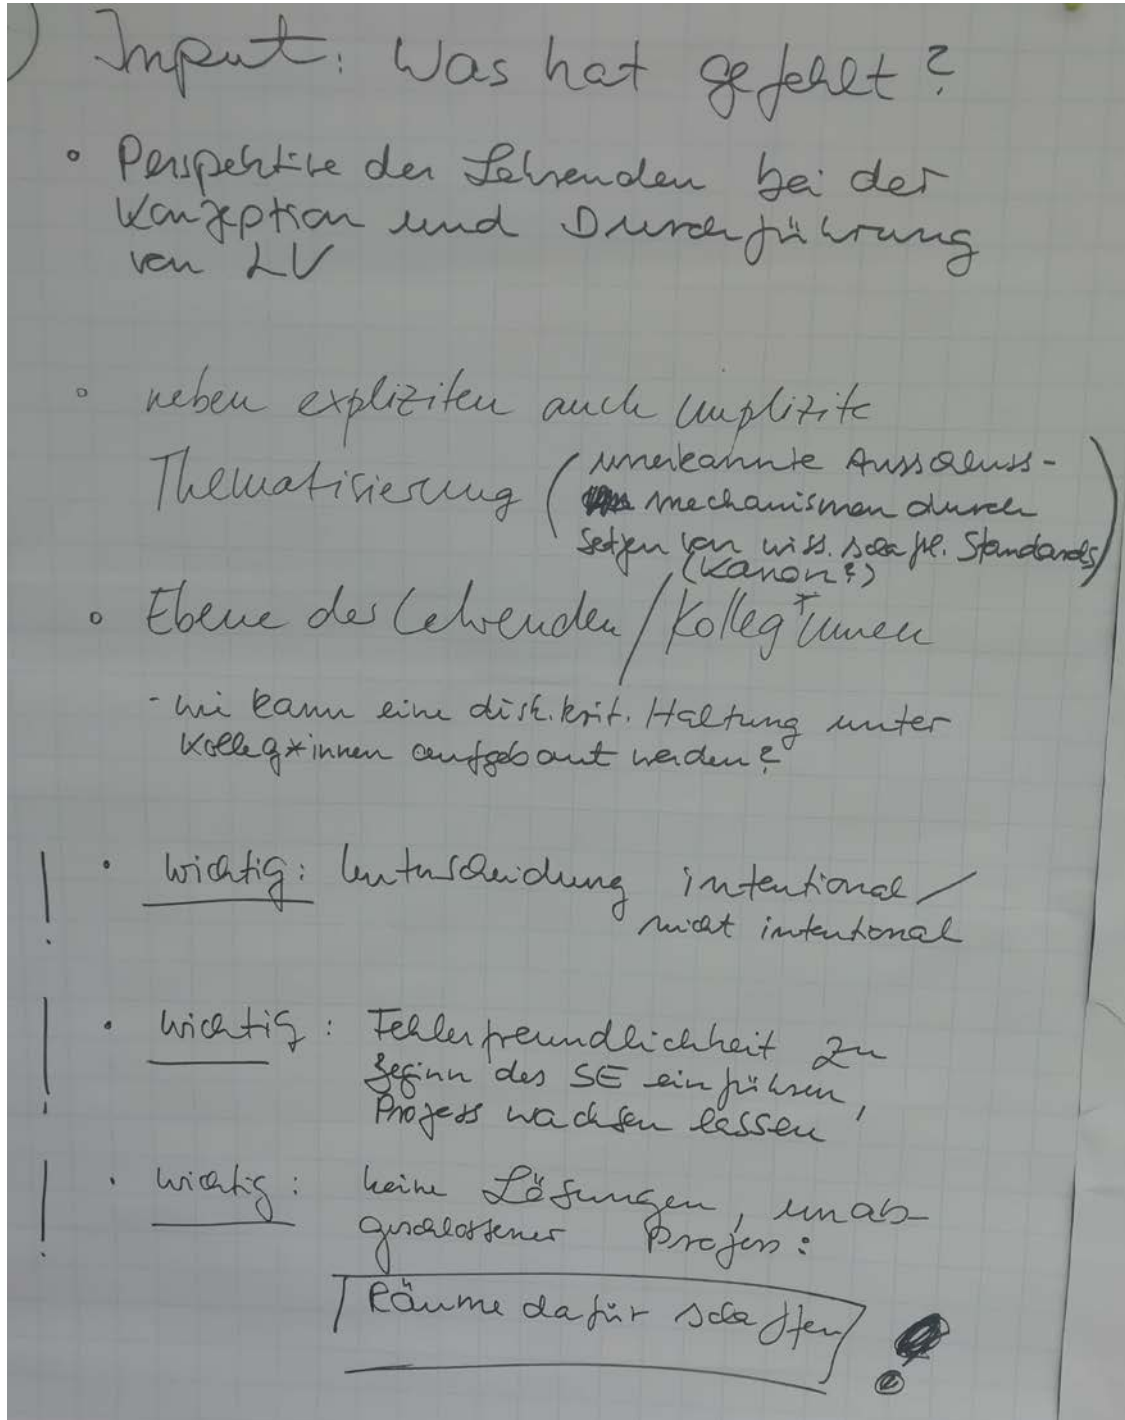 Input: Was hat gefehlt?
• Perspektive der Lehrenden bei der
Konzeption und Durchführung
von LV
• neben expliziten auch implizite
Thematisierung (unerkannte Ausschluss-
mechanismen durch
Setzen von wiss.schaftl. Standards)
(Kanon?)
• Ebene der Lehrenden / Kolleg*innen
- wie kann eine disk.krit. Haltung unter
Kolleg*innen aufgebaut werden?
! • wichtig: Unterscheidung intentional /
nicht intentional
! • wichtig: Fehlerfreundlichkeit zu
Beginn des SE einführen,
Prozess wachsen lassen
! • wichtig: keine Lösungen, unab-
geschlossener Prozess:
Räume dafür schaffen !